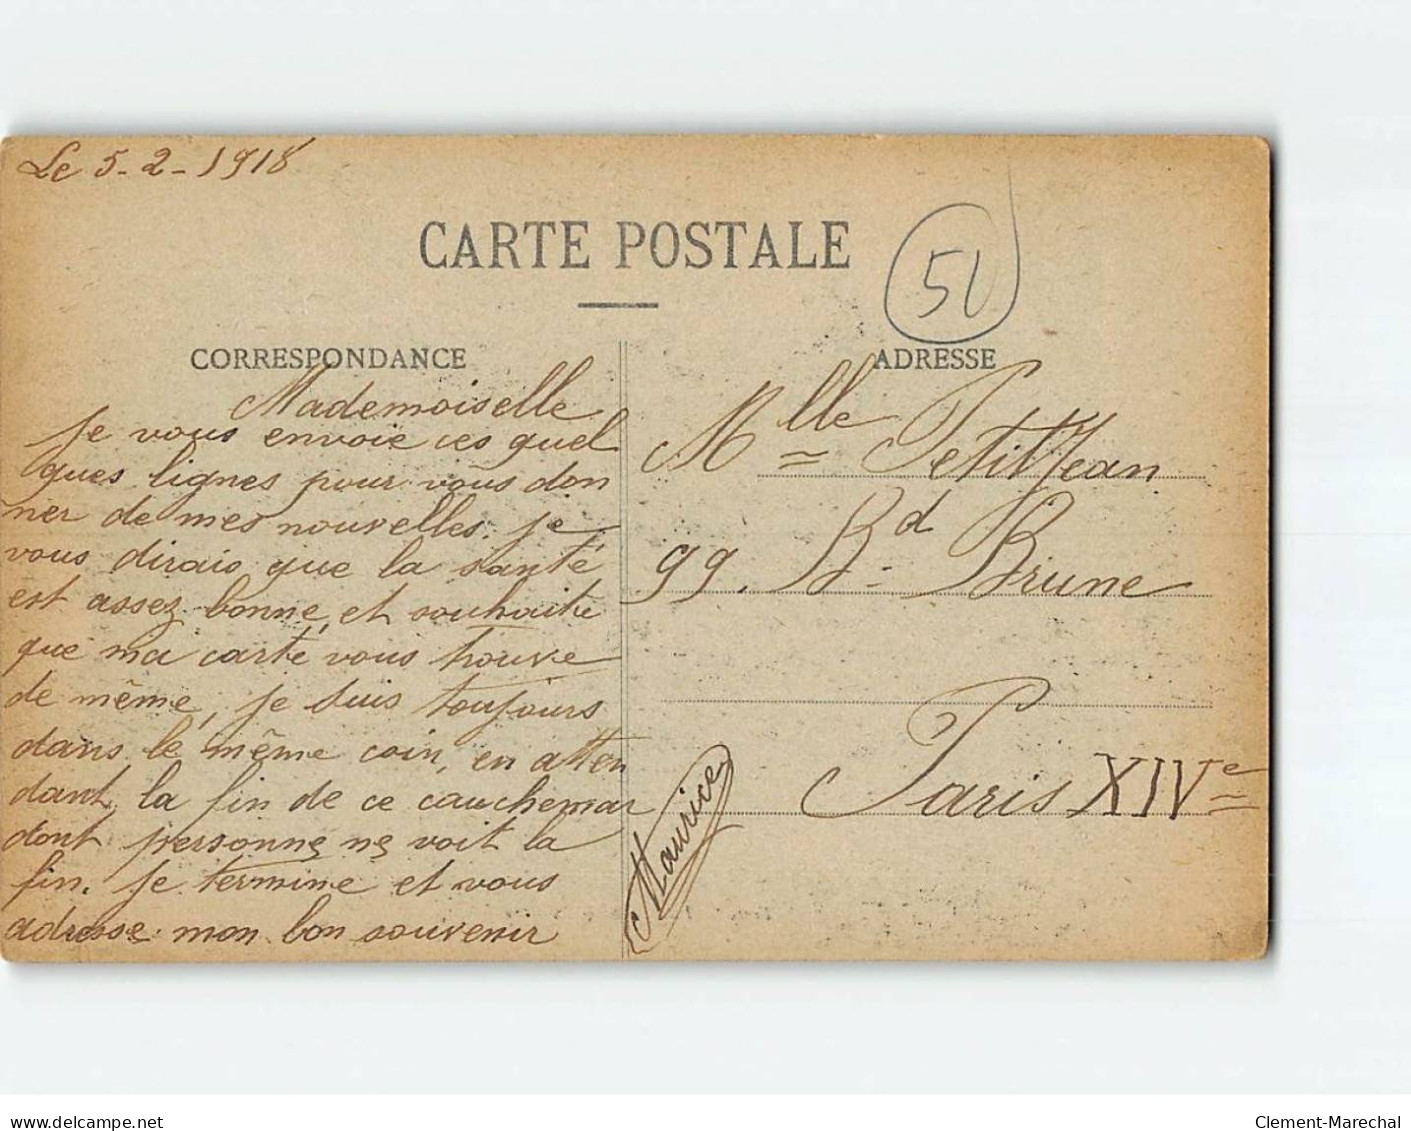 Le 5-2-1918
CARTE POSTALE
51
CORRESPONDANCE
Mademoiselle
Je vous envoie ces quel
ques lignes pour vous don
ner de mes nouvelles. Je
vous dirais que la santé
est assez bonne, et souhaite
que ma carte vous trouve
de même, je suis toujours
dans le même coin, en atten
dant la fin de ce cauchemar
dont personne ne voit la
fin. Je termine et vous
adresse mon bon souvenir
Maurice
ADRESSE
Mlle PetitJean
99. Bd Brune
Paris XIVe
www.delcampe.net
Clement-Marechal